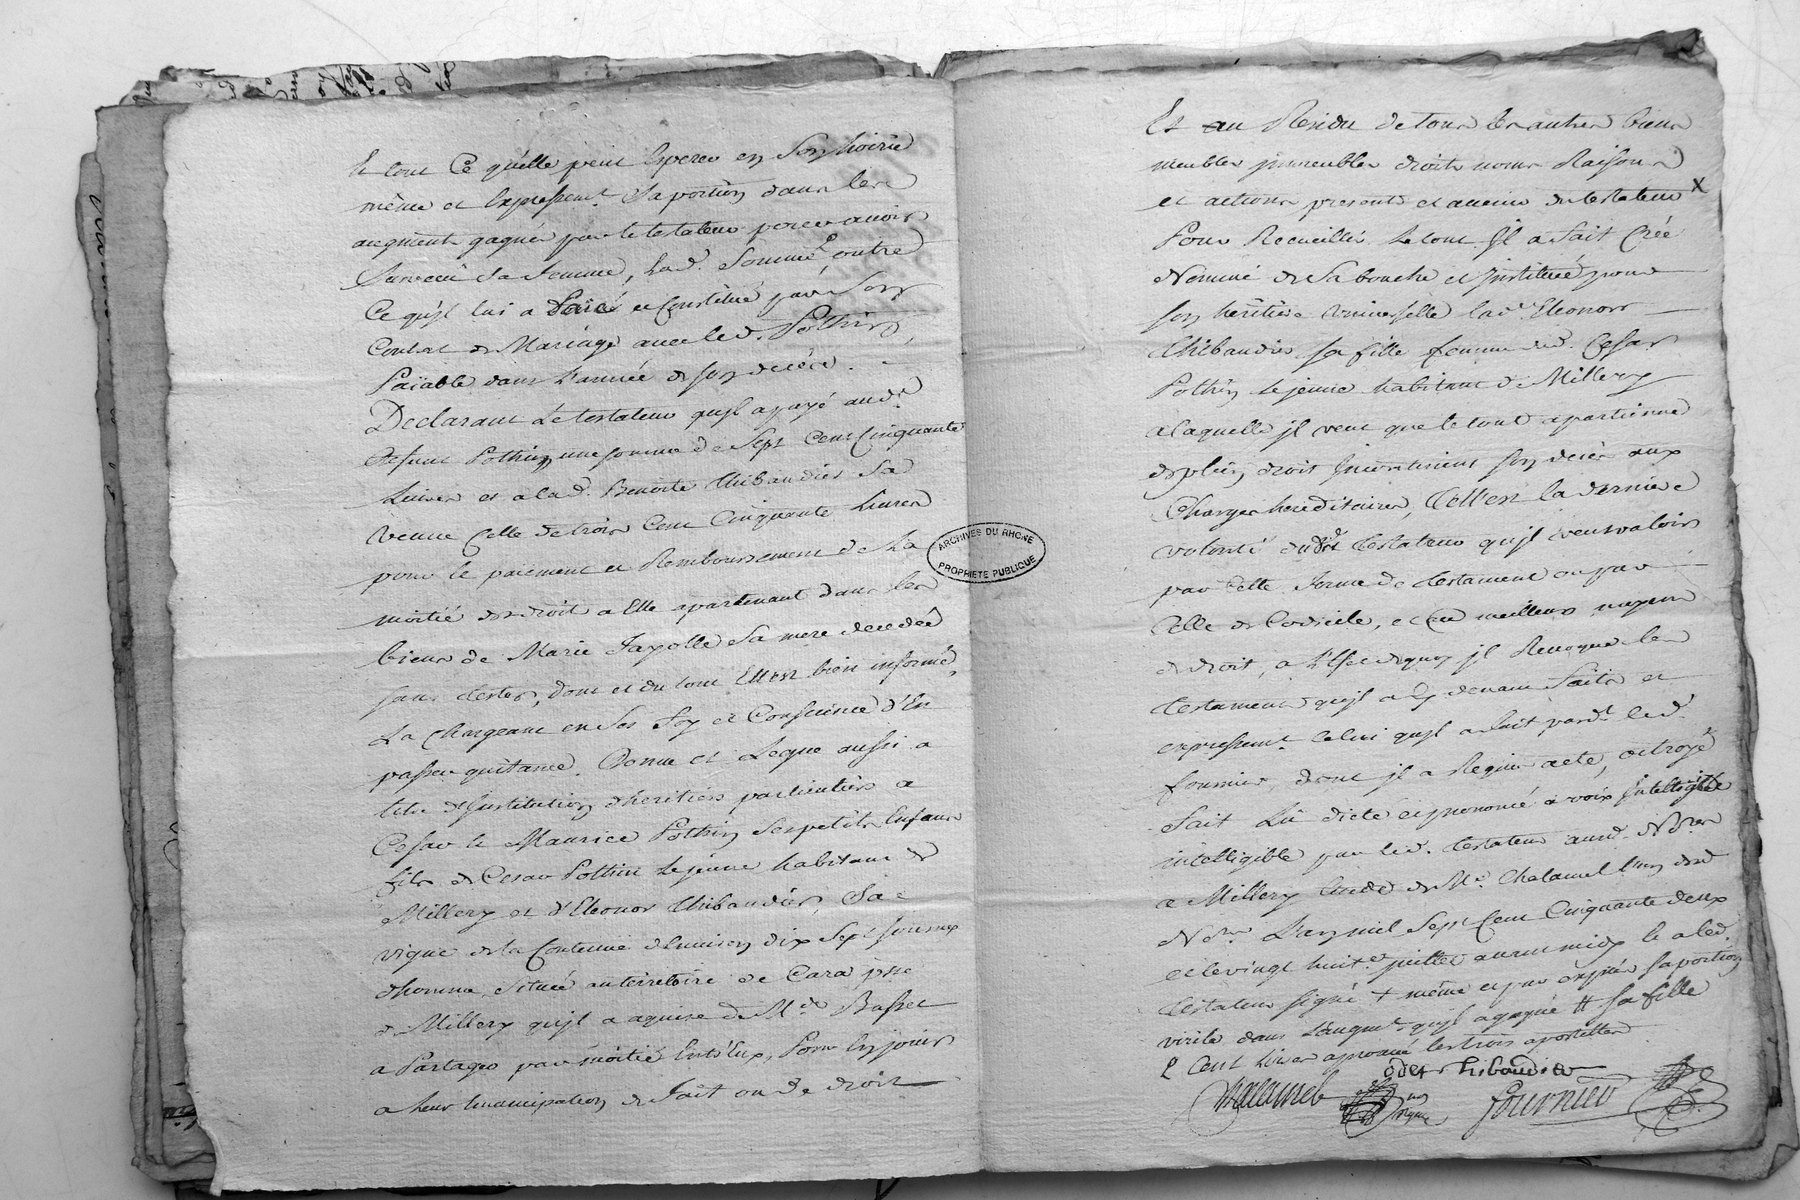 Et tout Ce qu'elle peut Esperer en Son hoirie
même et Expressem.t Sa portion dans les
augments gagnés par le testateur pour avoir
Survecu Sa femme, lad. Somme outre
Ce qu'il lui a Païé et Constitué par Son
Contrat de Mariage avec led. Pothin,
Païable dans L'année de son decès.
Declarant Le testateur qu'il a payé aud.
defunt Pothin une somme de Sept Cent Cinquante
Livres et a lad. Benoite thibaudier Sa
veuve Celle de trois Cent Cinquante Livres
pour le paiement et Remboursement de La
moitié des droits a Elle apartenant dans les
biens de Marie Fayolle Sa mere decedée
sans tester, dont et du tout Elle est bien informée,
La chargeant en Ses foy et Conscience d'En
passer quittance. Donne et Legue aussi a
titre d'Institution d'heritiers particuliers a
Cesar & Maurice Pothin Ses petits Enfans
fils de Cesar Pothin Le jeune habitant de
Millery et d'Eleonor thibaudier, Sa
vigne de la Contenue d'environ dix Sept journées
d'homme, située au territoire de Cara psse
de Millery qu'il a aquise de M.r Basset
a Partager par moitié Entr'Eux, Pour En jouir
a leur Emancipation de fait ou de droit
Et au Residu de tous les autres biens
meubles immeubles droits noms Raisons
et actions presents et avenir du testateur x
Pour Recueillir Le tout Il a fait Créé
Nommé de Sa bouche et Institué pour
son héritière universelle lad. Eleonor
thibaudier sa fille femme dud. Cesar
Pothin Le jeune habitant de Millery
a laquelle il veut que le tout apartienne
de plein droit Incontinent son decès aux
Charges hereditaires, Telle est la derniere
volonté dudit testateur qu'il veut valoir
par Cette forme de testament ou par
Celle de Codicile, et au meilleurs moyens
de droit, a L'Effet de quoy il Revoque les
testaments qu'il a Cy devant faits et
expressem.t Celui qu'il a fait pard.t led.
fournier, dont il a Requis acte, octroyé
fait Lû dicté et prononcé a voix Intelligible
intelligible par led. testateur auxd. No.res
a Millery Etude de M.e Chalamel l'un desd
No.res L'an mil Sept Cent Cinquante deux
et le vingt huit.e juillet avant midy le a led.
testateur signé + même et par exprès sa portion
virile dans L'augm.t qu'il a gagné # sa fille
& Cent Livres aprouvé les trois apostilles
odet thibaudier
Chalamel
fournier
ARCHIVES DU RHONE
PROPRIETE PUBLIQUE